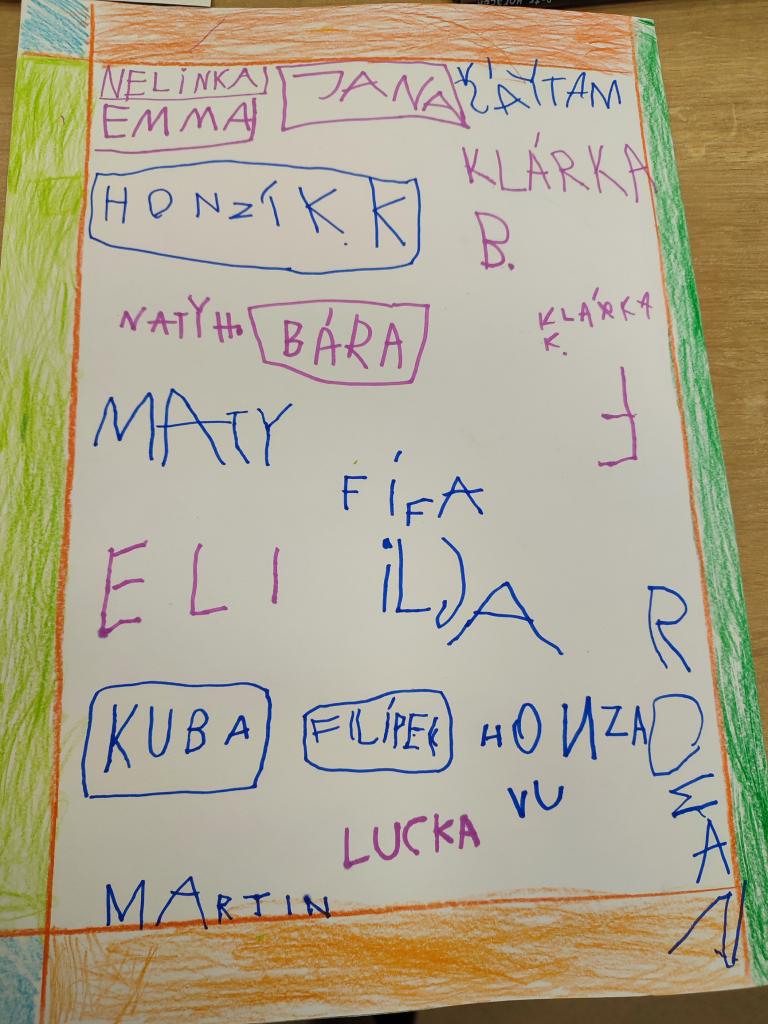 NELINKA
EMMA
JANA
KLÁRKA
B.
HONZÍK.K
NATÝ H.
BÁRA
KLÁRKA
K.
MATY
FÍFA
ELI
ILJA
KUBA
FILÍPEK
HONZA
VU
LUCKA
MARTIN